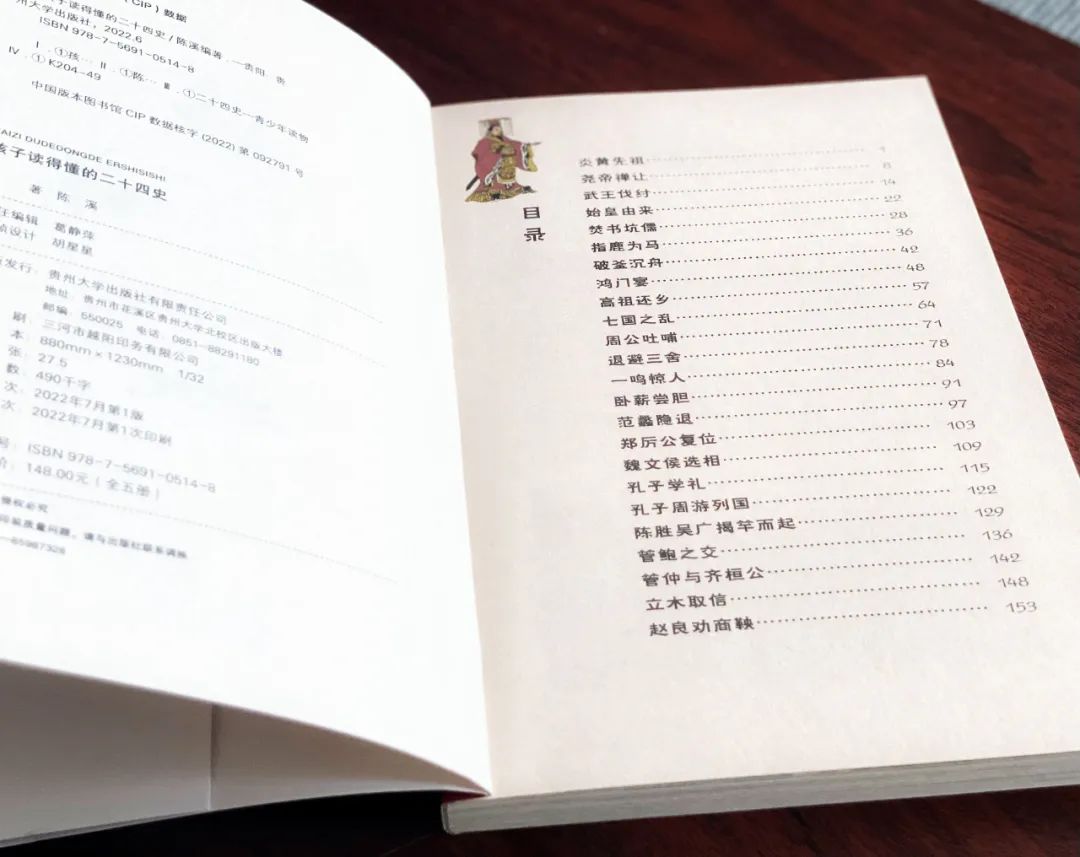 (CIP) 数据
孩子读得懂的二十四史 / 陈溪编著. —贵阳: 贵
州大学出版社, 2022.6
ISBN 978-7-5691-0514-8
Ⅰ. ①孩… Ⅱ. ①陈… Ⅲ. ①二十四史—青少年读物
Ⅳ. ①K204-49
中国版本图书馆 CIP 数据核字 (2022) 第 092791 号
AIZI DUDEDONGDE ERSHISISHI
孩子读得懂的二十四史
著 陈 溪
任编辑 葛静萍
帧设计 胡星星
发行: 贵州大学出版社有限责任公司
地址: 贵州市花溪区贵州大学北校区出版大楼
邮编: 550025 电话: 0851-88291180
刷 三河市越阳印务有限公司
本 880mm×1230mm 1/32
张: 27.5
数: 490千字
次: 2022年7月第1版
次: 2022年7月第1次印刷
号: ISBN 978-7-5691-0514-8
价: 148.00元 (全五册)
侵权必究
印装质量问题, 请与出版社联系调换
-85987328
目录
炎黄先祖 1
尧帝禅让 8
武王伐纣 14
始皇由来 22
焚书坑儒 28
指鹿为马 36
破釜沉舟 42
鸿门宴 48
高祖还乡 57
七国之乱 64
周公吐哺 71
退避三舍 78
一鸣惊人 84
卧薪尝胆 91
范蠡隐退 97
郑厉公复位 103
魏文侯选相 109
孔子学礼 115
孔子周游列国 122
陈胜吴广揭竿而起 129
管鲍之交 136
管仲与齐桓公 142
立木取信 148
赵良劝商鞅 153